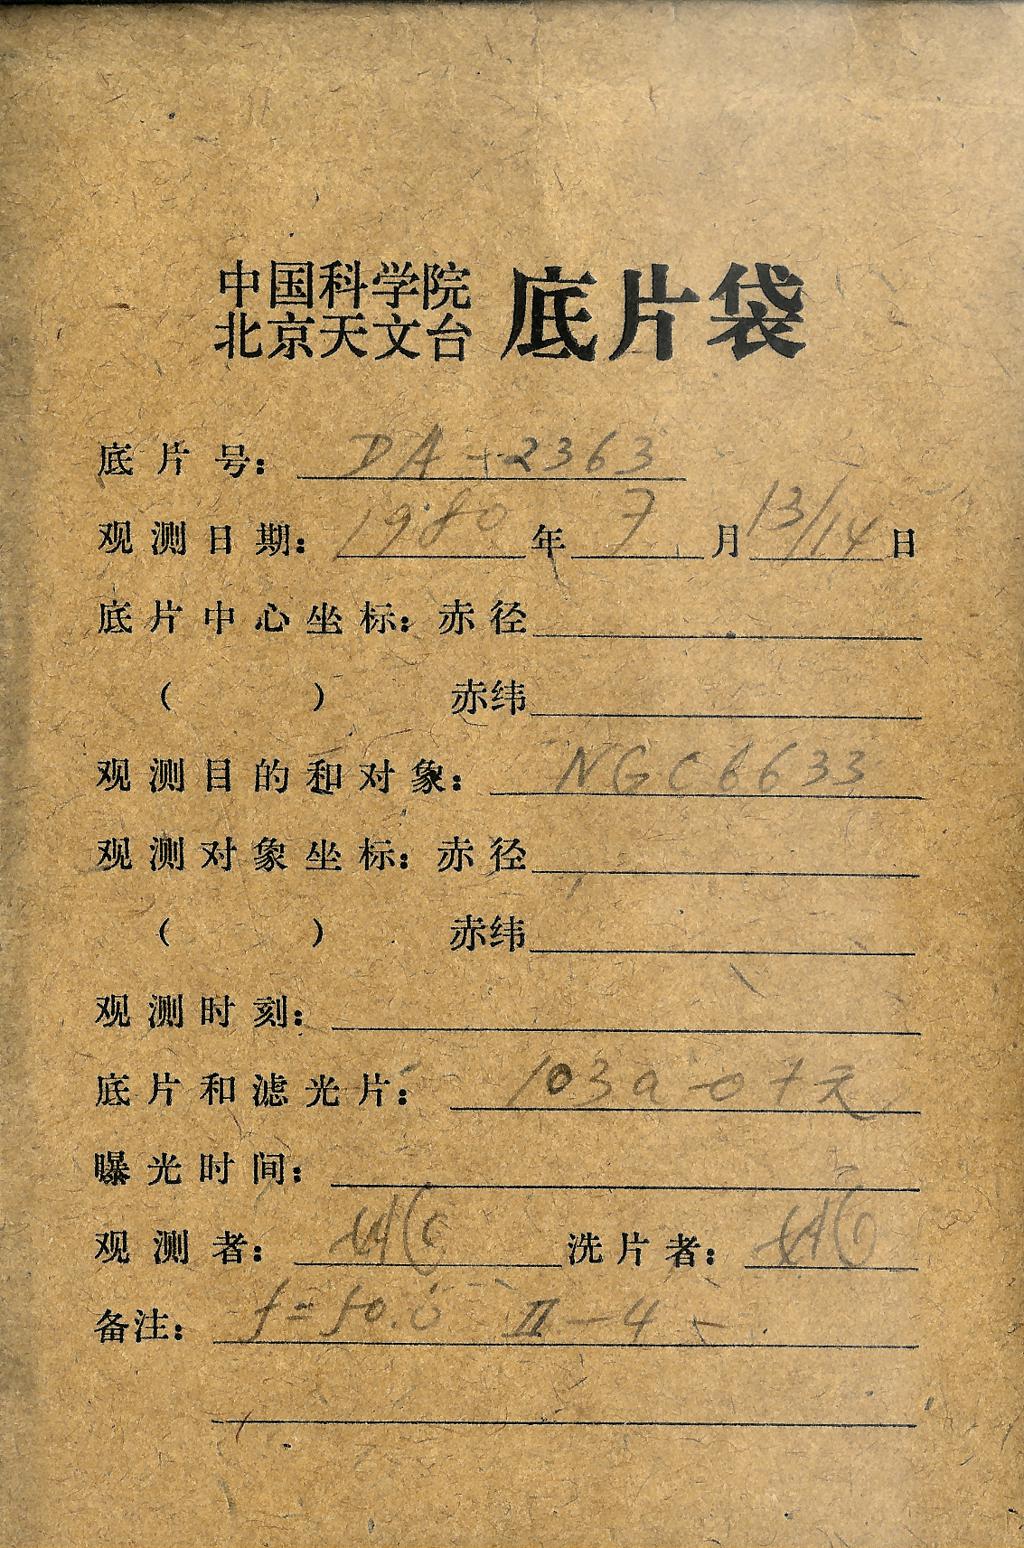 中国科学院
北京天文台 底片袋
底片号： DA-2363
观测日期： 1980 年 7 月 13/14 日
底片中心坐标：赤径
（ ） 赤纬
观测目的和对象： NGC6633
观测对象坐标：赤径
（ ） 赤纬
观测时刻：
底片和滤光片： 103a-0 + 无
曝光时间：
观测者： 洗片者：
备注： f=50.0 II-4